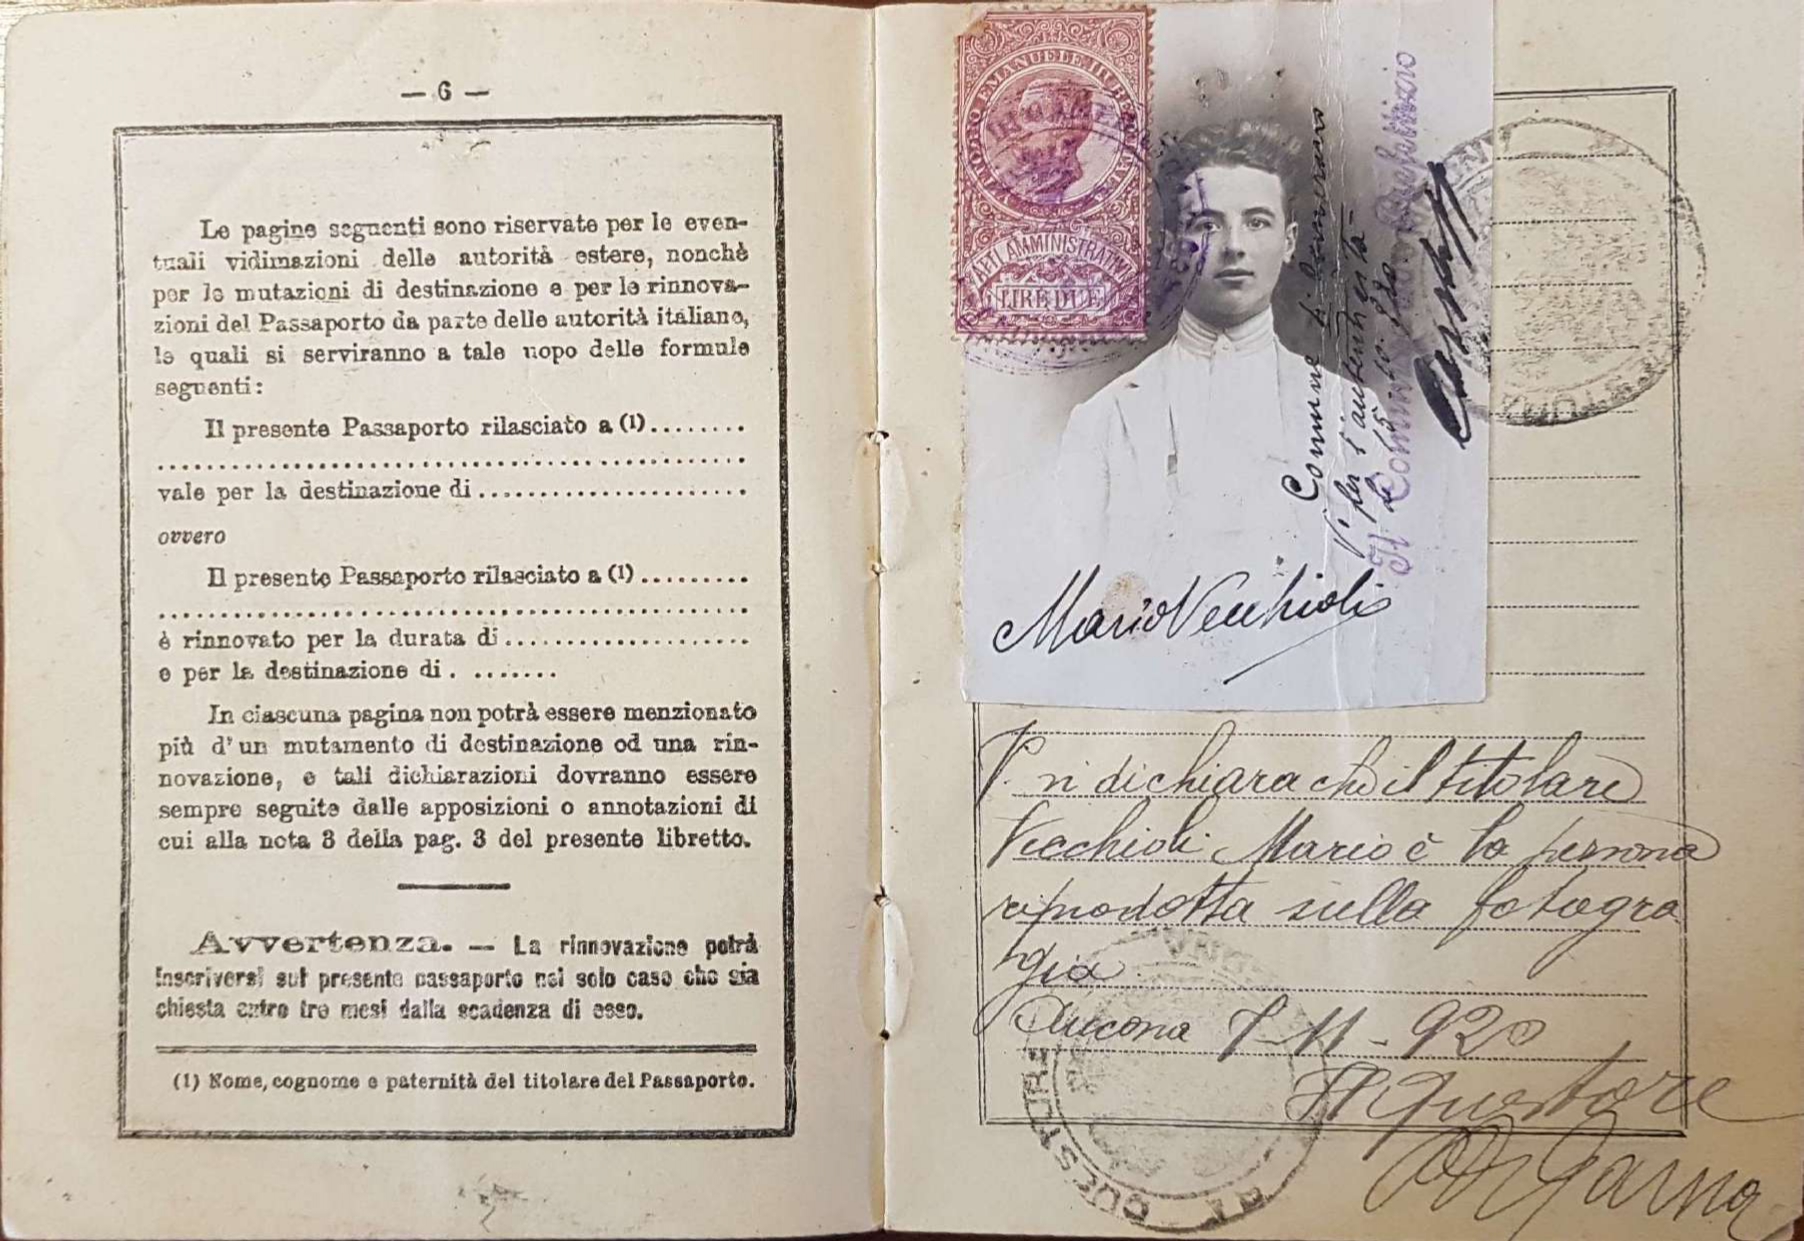 — 6 —
Le pagine seguenti sono riservate per le even-
tuali vidimazioni delle autorità estere, nonchè
per le mutazioni di destinazione e per le rinnova-
zioni del Passaporto da parte delle autorità italiane,
le quali si serviranno a tale uopo delle formule
seguenti:
Il presente Passaporto rilasciato a (1)........
..........................................
vale per la destinazione di......................
ovvero
Il presente Passaporto rilasciato a (1).........
..........................................
è rinnovato per la durata di....................
e per la destinazione di. .......
In ciascuna pagina non potrà essere menzionato
più d'un mutamento di destinazione od una rin-
novazione, e tali dichiarazioni dovranno essere
sempre seguite dalle apposizioni o annotazioni di
cui alla nota 3 della pag. 3 del presente libretto.
Avvertenza. — La rinnovazione potrà
inscriversi sul presente passaporto nel solo caso che sia
chiesta entro tre mesi dalla scadenza di esso.
(1) Nome, cognome e paternità del titolare del Passaporto.
EMANUELE III RE
ATTI AMMINISTRATIVI
LIRE DUE
Comune di Camerano
Vº per l'autenticità
Il Commissario Prefettizio
Mario Vecchioli
si dichiara che il titolare
Vecchioli Mario è la persona
riprodotta sulla fotogra
fia
Ancona 11-920
Il Questore
QUESTURE